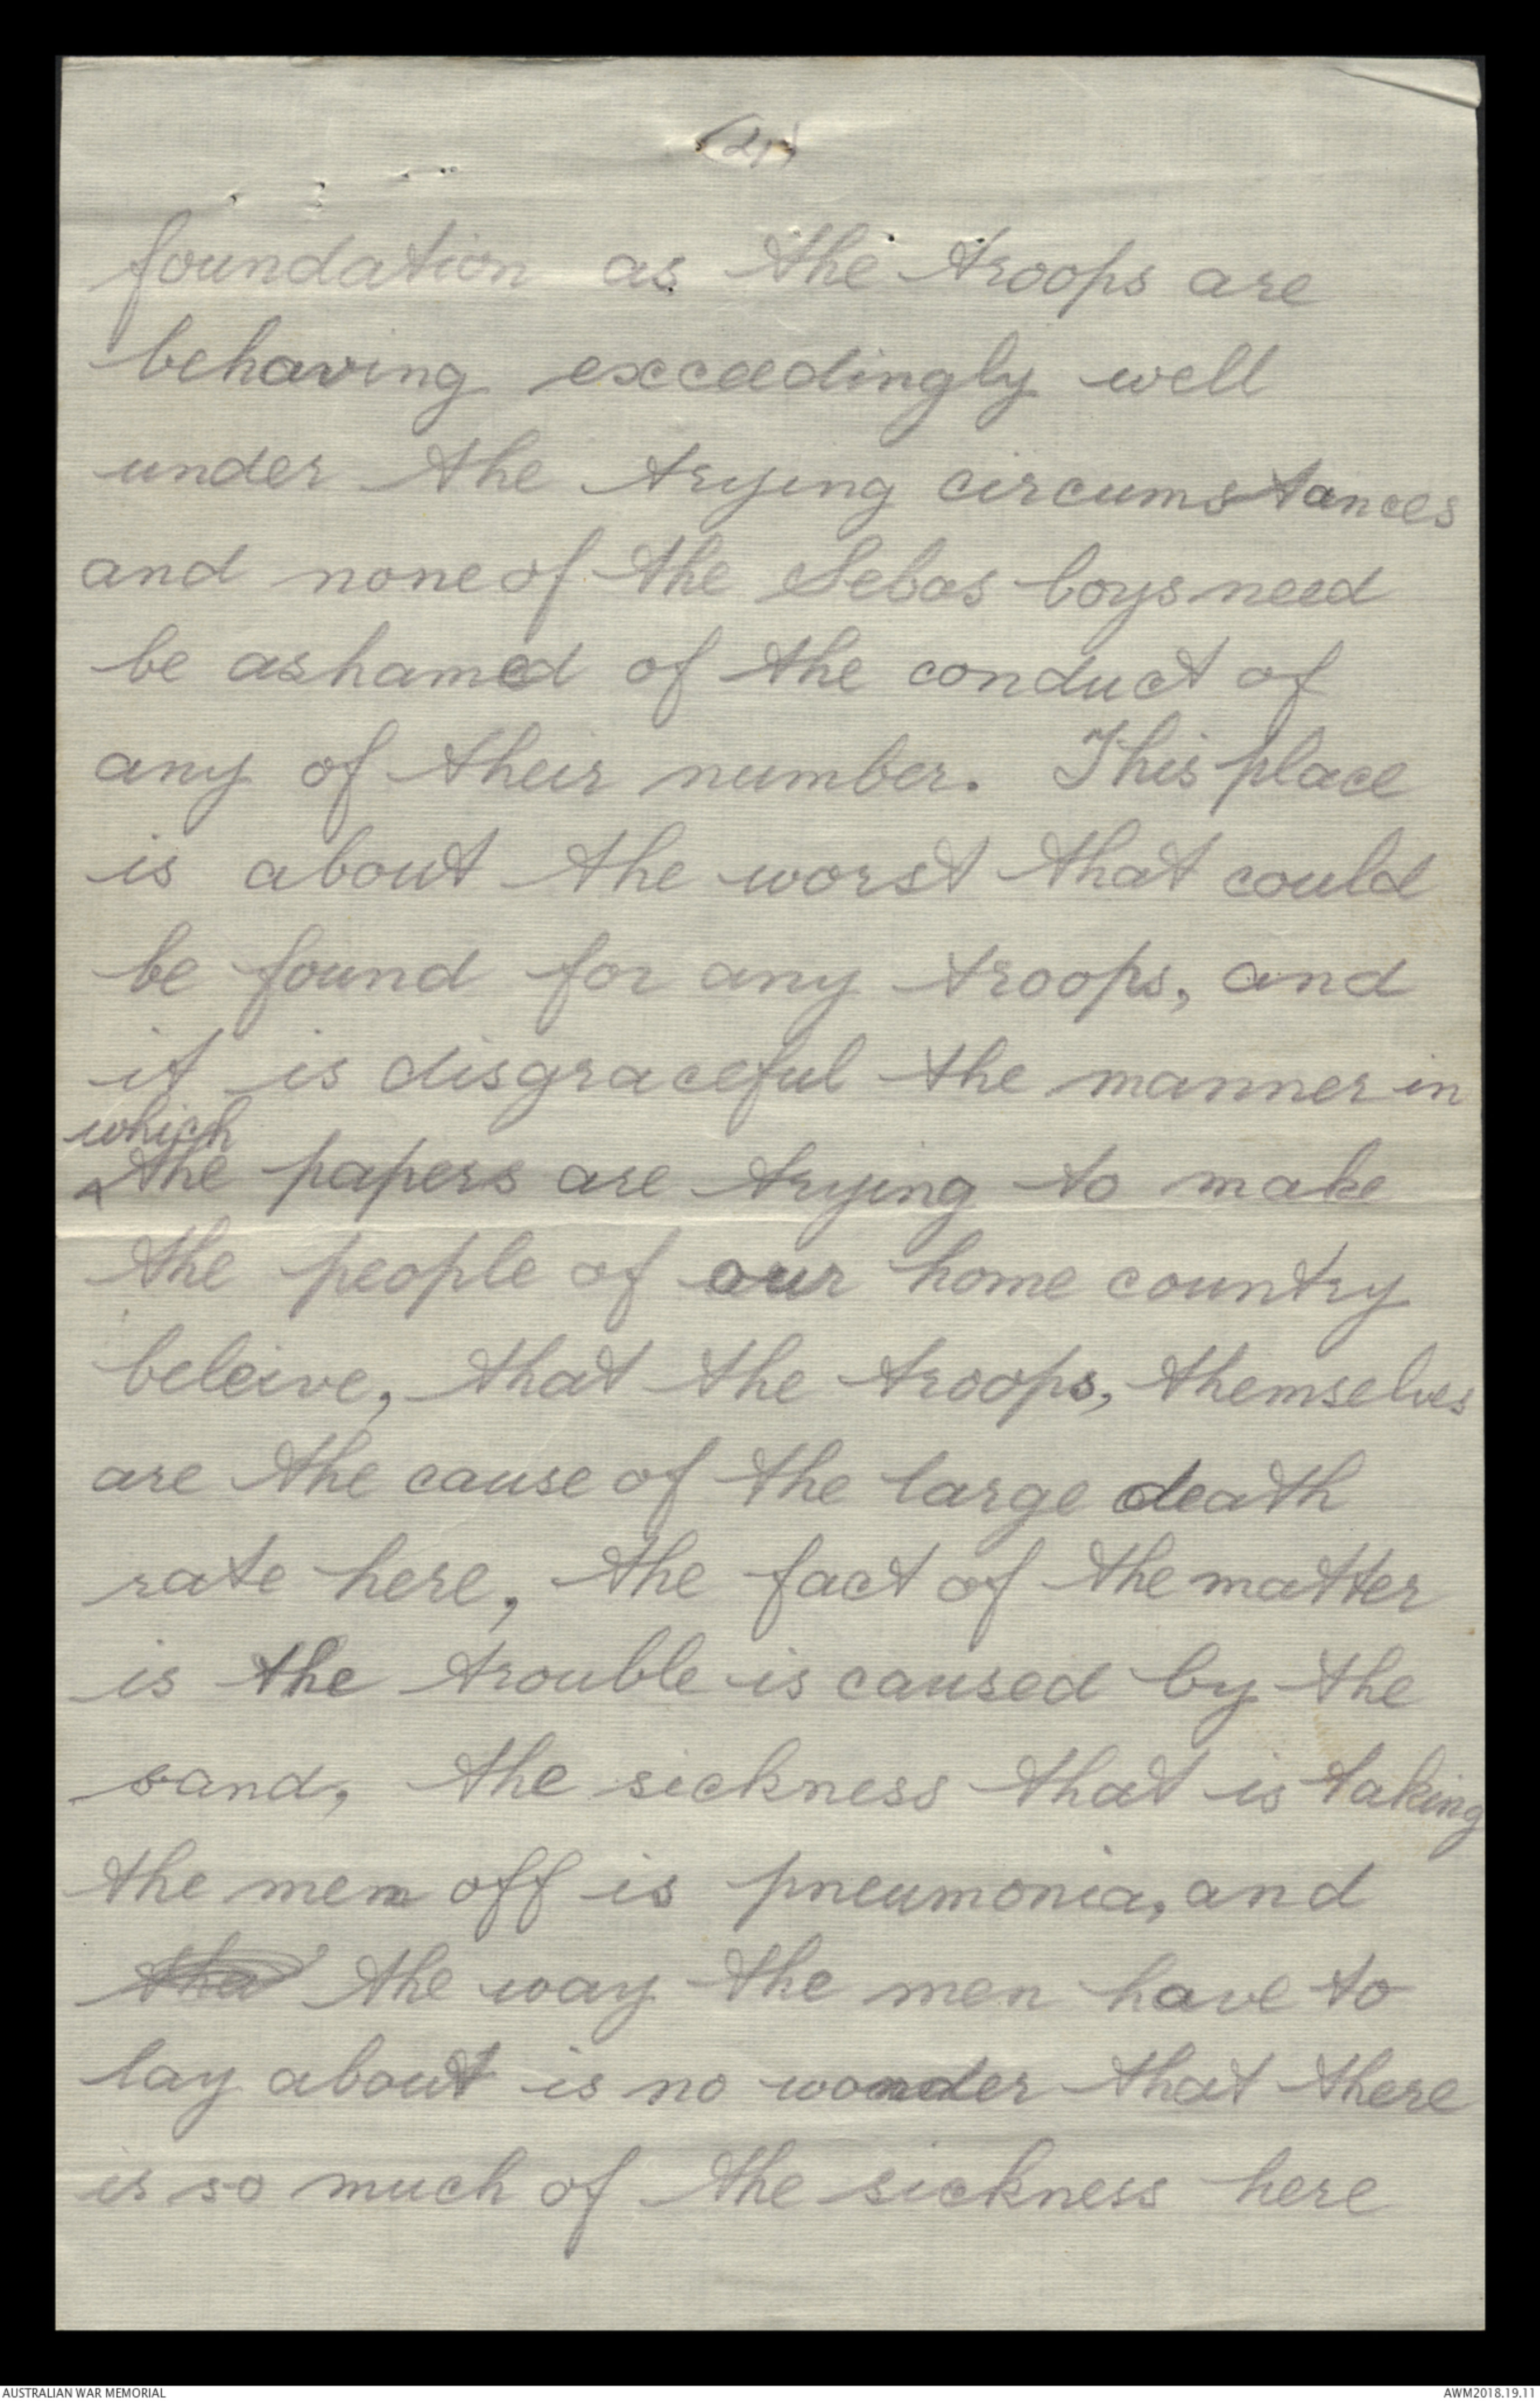 (2)
foundation as the troops are
behaving exceedingly well
under the trying circumstances
and none of the Sebas boys need
be ashamed of the conduct of
any of their number. This place
is about the worst that could
be found for any troops, and
it is disgraceful the manner in
which
^the papers are trying to make
the people of our home country
beleive, that the troops, themselves
are the cause of the large death
rate here, the fact of the matter
is the trouble is caused by the
sand, the sickness that is taking
the men off is pneumonia, and
the way the men have to
lay about is no wonder that there
is so much of the sickness here
AUSTRALIAN WAR MEMORIAL
AWM2018.19.11